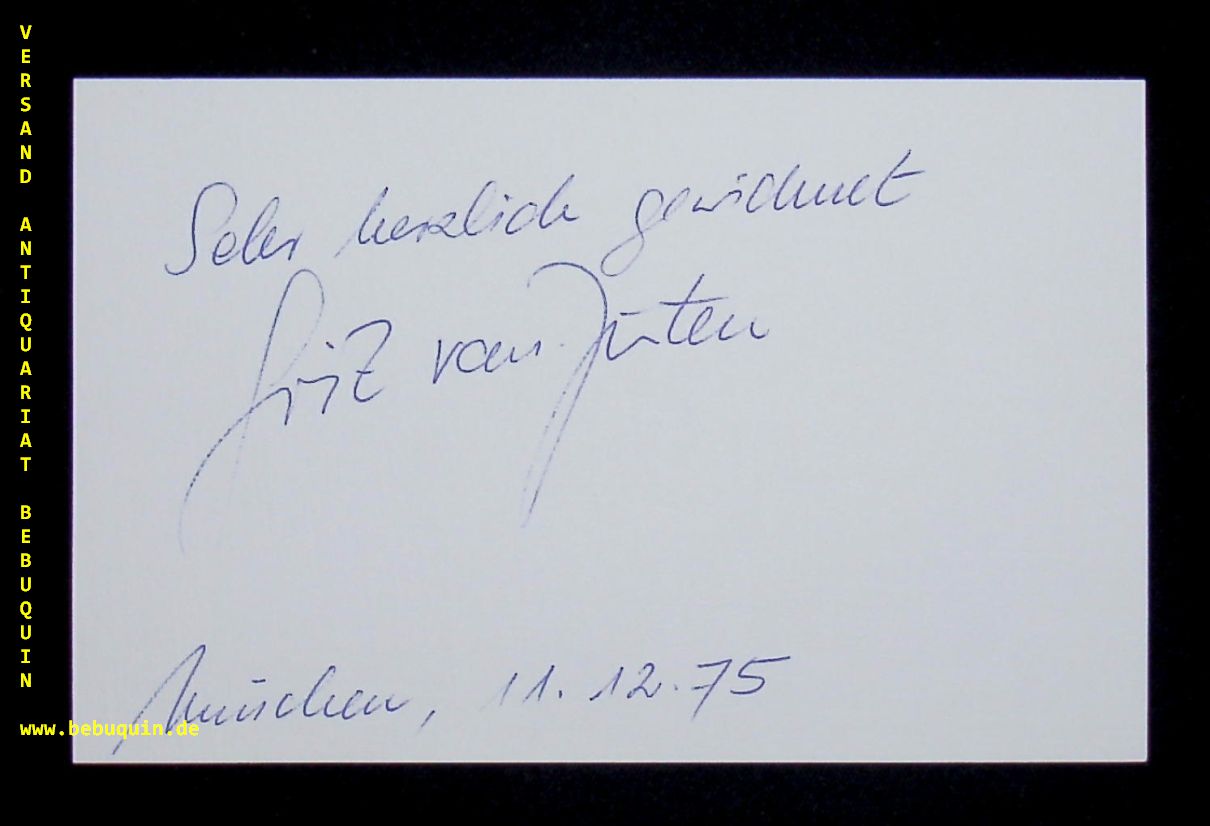 VERSAND ANTIQUARIAT BEBUQUIN
Sehr herzlich gewidmet
Grit van Jüten
München, 11.12.75
www.bebuquin.de